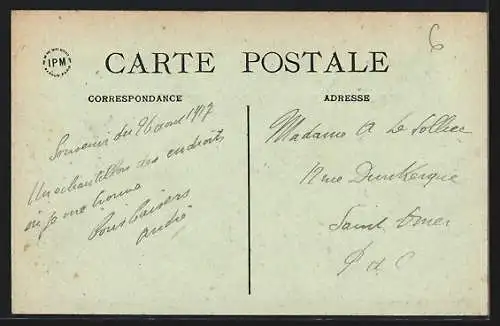 6
IPM
CARTE POSTALE
CORRESPONDANCE
ADRESSE
Souvenir du 26 aout 1917
Un echantillon des endroits
ou je me trouve
Bons Baisers
André
Madame A Le Sollier
Rue Dunkerque
Saint Omer
P d C